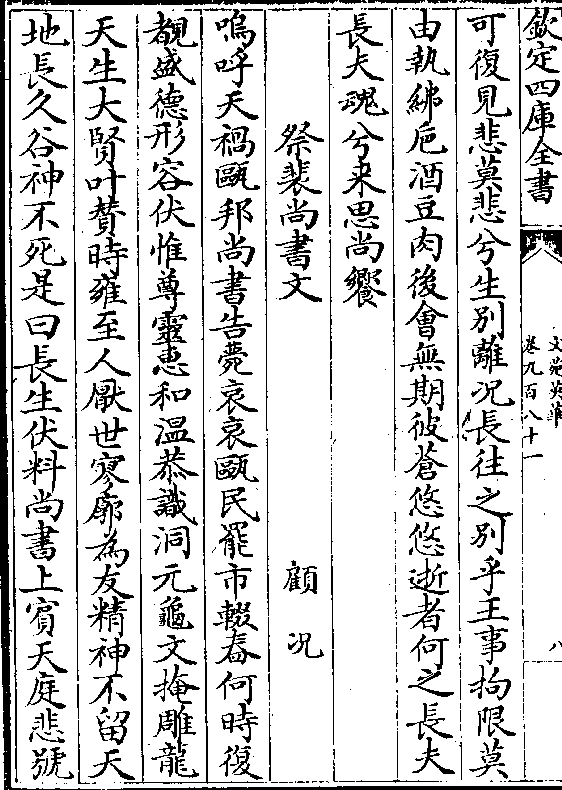 欽定四庫全書
文苑英華
卷九百八十一
八
可復見悲莫悲兮生別離况長往之別乎王事拘限莫
由執紼巵酒豆肉後會無期彼蒼悠悠逝者何之長夫
長夫魂兮来思尚饗
祭裴尚書文 顧况
嗚呼天禍甌邦尚書告薨哀哀甌民罷市輟舂何時復
覩盛德形容伏惟尊靈惠和温恭識洞元龜文掩雕龍
天生大賢叶賛時雍至人厭世寥廓為友精神不留天
地長久谷神不死是曰長生伏料尚書上賓天庭悲號